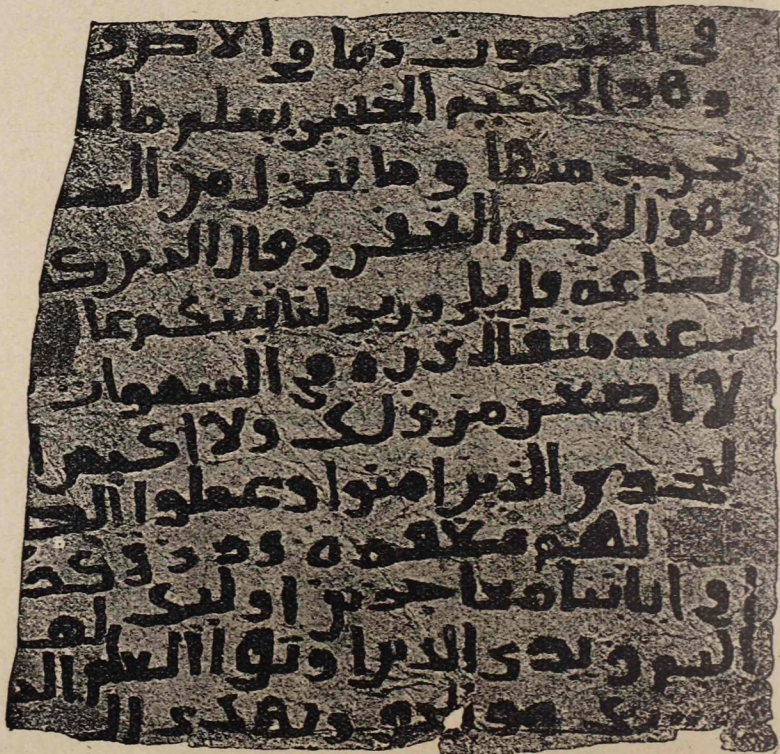 في السموت وما في الارض
وهو الحكيم الخبير يعلم ما
يخرج منها وما ينزل من الس
وهو الرحيم الغفر وقال الذين ك
الساعة قل بلى وربي لتاتينكم عا
عنه مثقال ذرة في السموات
لا اصغر من ذلك ولا اكبر ا
ليجزي الذين امنوا وعملوا الص
لهم مغفرة ورزق كر
في اياتنا معاجزين اوليك لهم
اليم ويرى الذين اوتوا العلم الذ
ربك هو الحق ويهدي ال